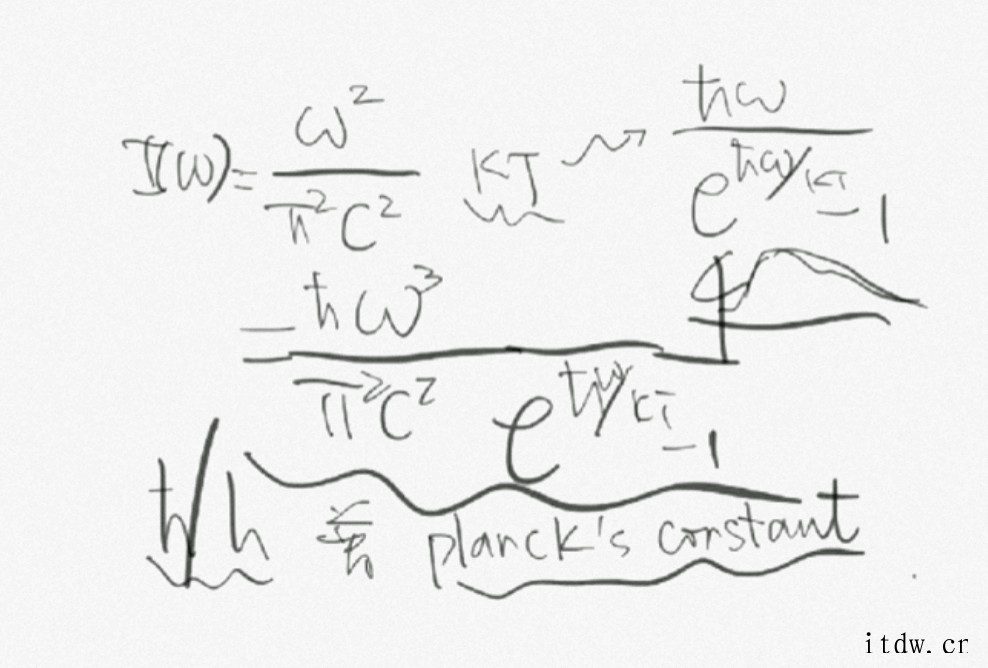 I(ω)= ω²/π²c² KT ⇝ ħω/e^ħω/KT − 1
= ħω³/π²c² e^ħω/KT − 1
ħ/h planck's constant
itdw.cn